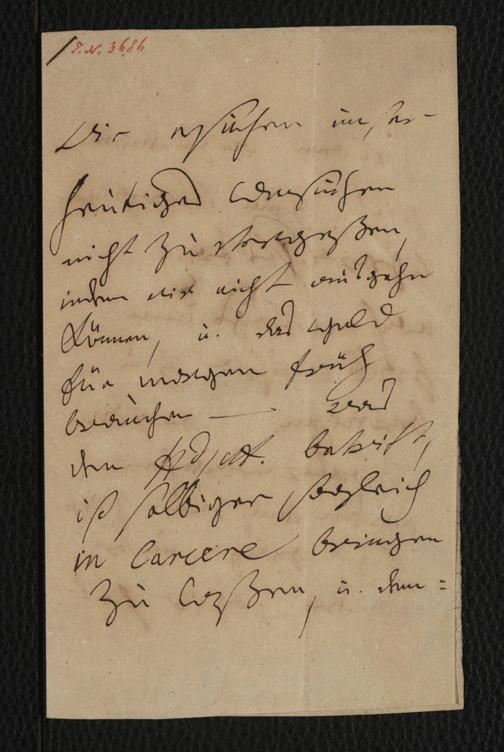 S.N. 3686
Wir ersuchen unser
heutiges Ansuchen
nicht zu vergeßen,
indem wir nicht ausgehn
können, u. das geld
für morgen früh
brauchen — was
den Adjut. betrift,
ist selbiger sogleich
in Carcere bringen
zu laßen, u. dem=